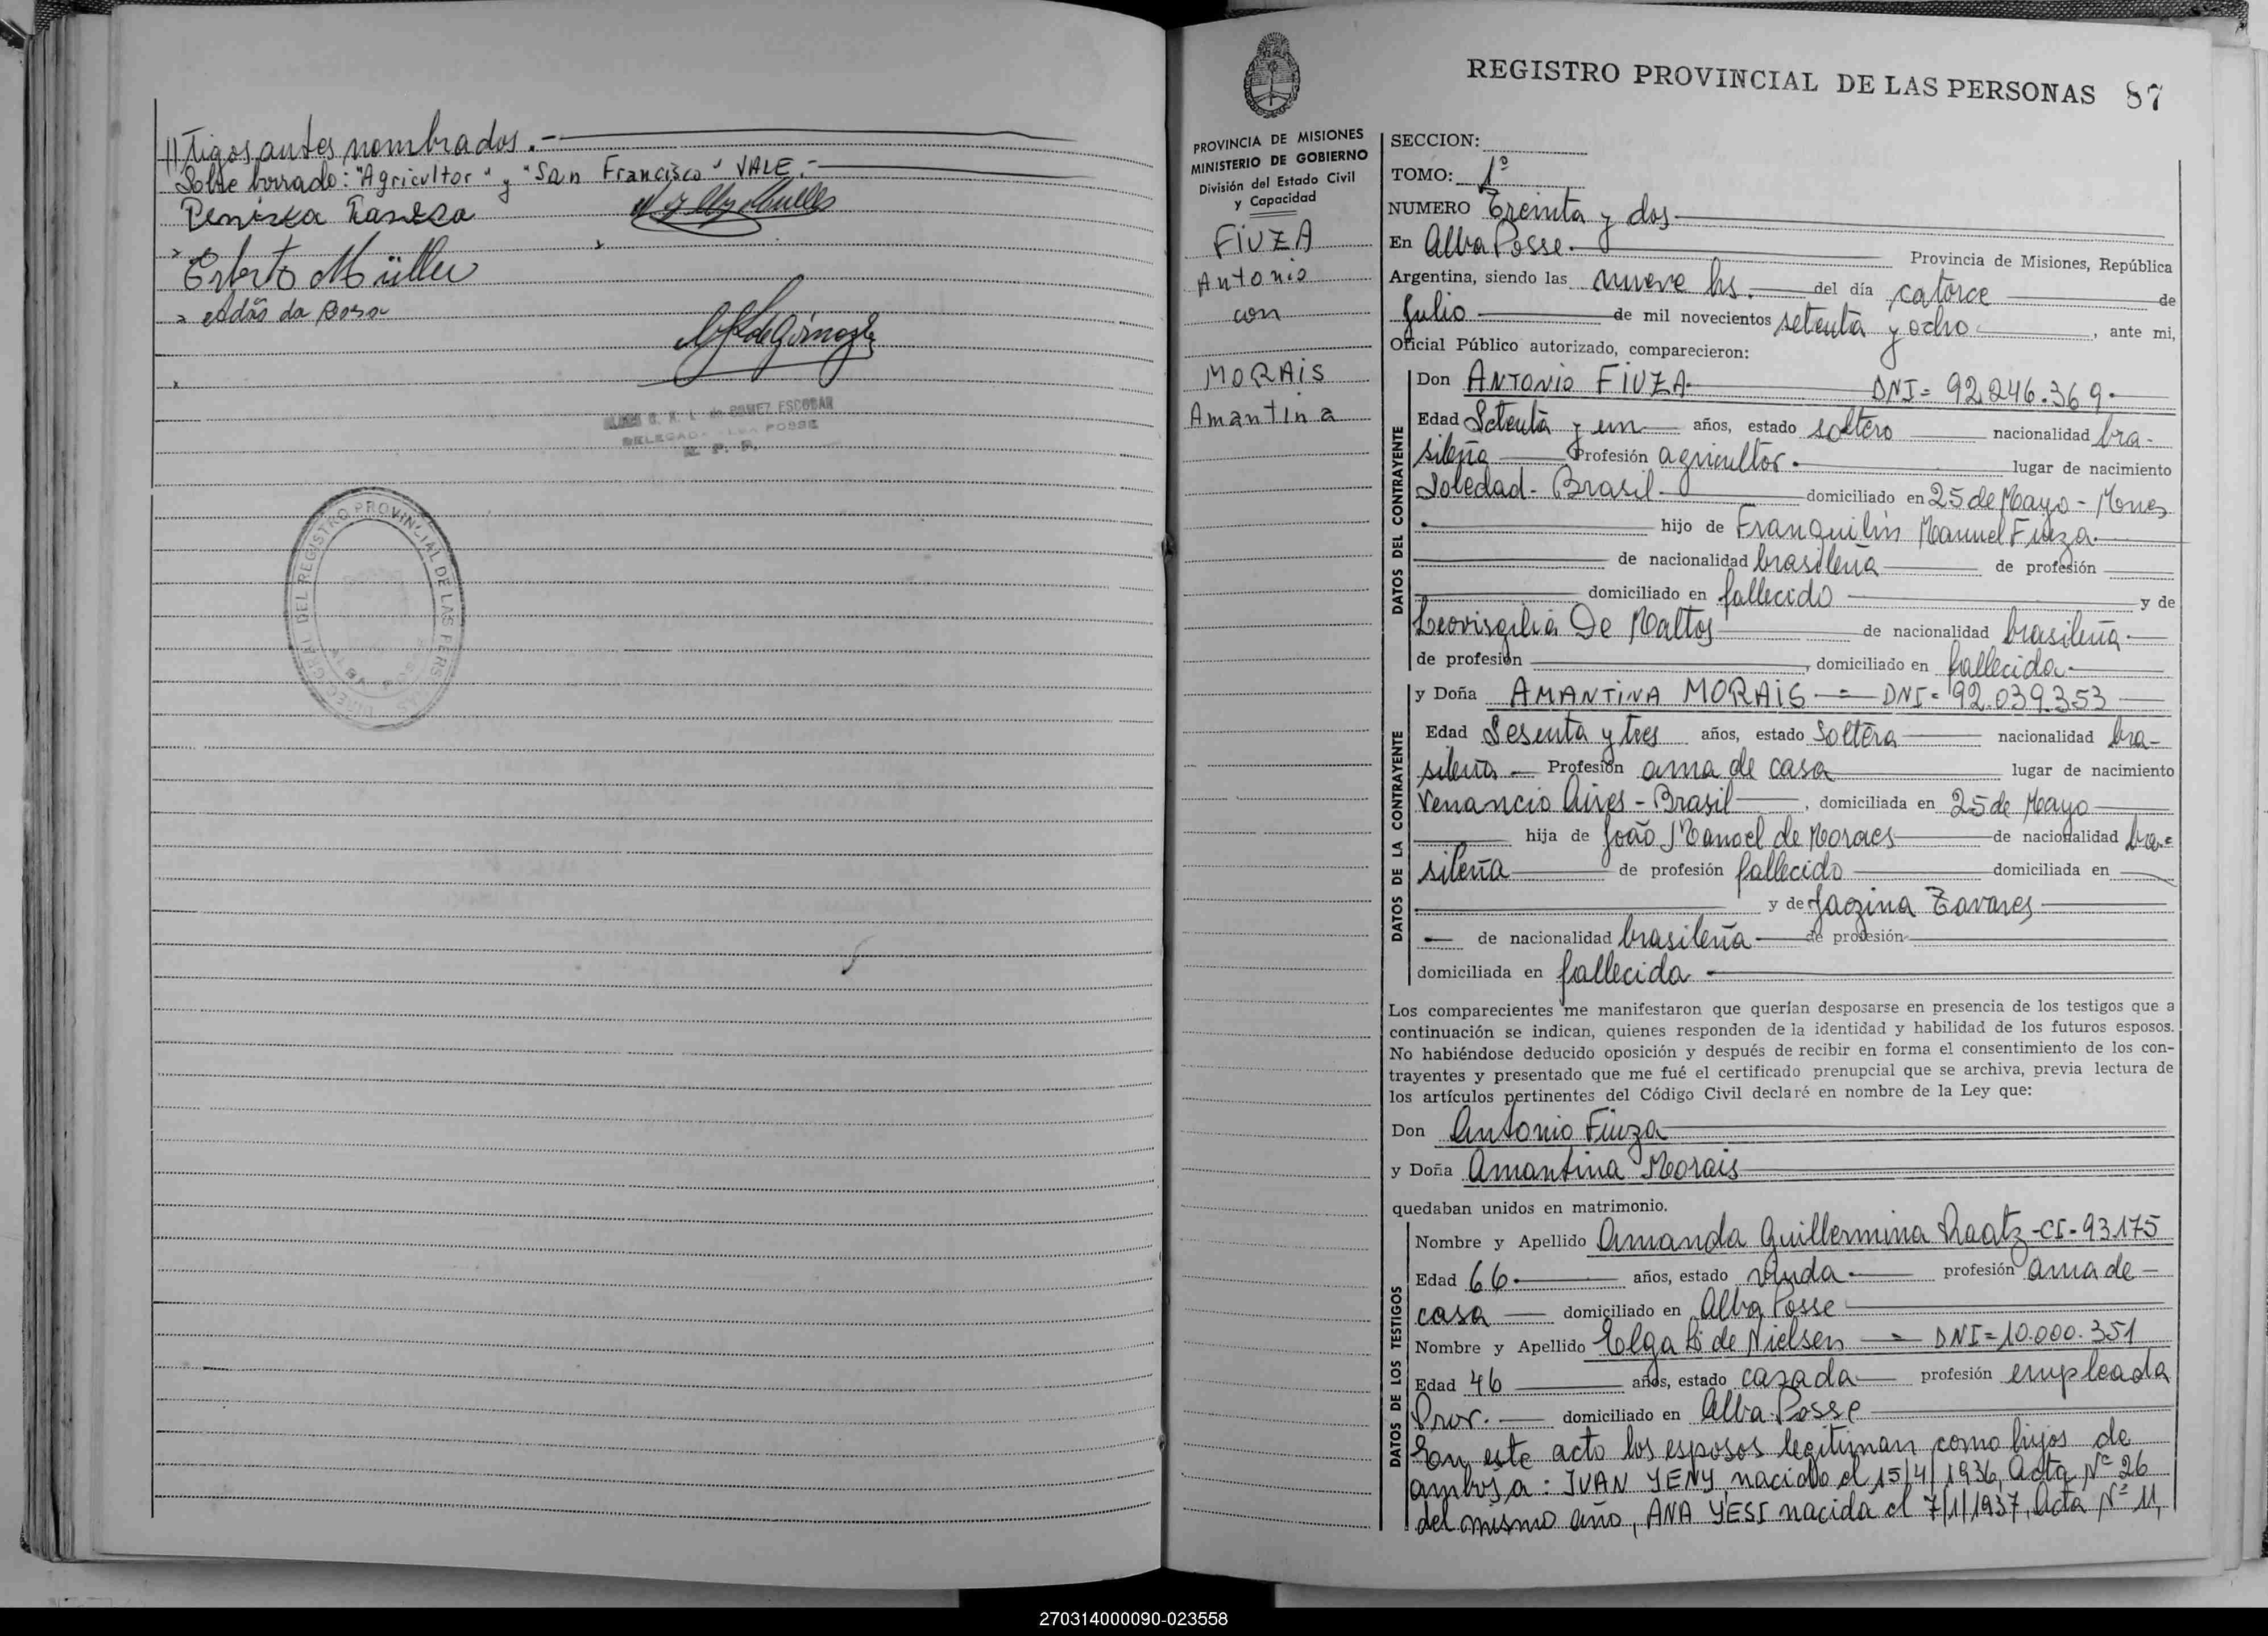 //tigos antes nombrados.-
Sobre borrado: "Agricultor" y "San Francisco" VALE.-
Erberto Müller
Adão da Rosa
GOMEZ ESCOBAR
DELEGADA ALBA POSSE
R. P. P.
DIREC. GRAL. DEL REGISTRO PROVINCIAL DE LAS PERSONAS
ALBA POSSE
REGISTRO PROVINCIAL DE LAS PERSONAS 87
PROVINCIA DE MISIONES
MINISTERIO DE GOBIERNO
División del Estado Civil
y Capacidad
FIUZA
Antonio
con
MORAIS
Amantina
SECCION:
TOMO: 1º
NUMERO Treinta y dos
En Alba Posse. Provincia de Misiones, República
Argentina, siendo las nueve hs. del día catorce de
Julio de mil novecientos setenta y ocho, ante mi,
Oficial Público autorizado, comparecieron:
DATOS DEL CONTRAYENTE
Don ANTONIO FIUZA DNI= 92.246.369.
Edad Setenta y un años, estado soltero nacionalidad bra-
sileña Profesión agricultor. lugar de nacimiento
Soledad - Brasil domiciliado en 25 de Mayo - Mnes
hijo de Franquilin Manuel Fiuza
de nacionalidad brasileña de profesión
domiciliado en fallecido y de
Leovisgilia De Mattos de nacionalidad brasileña.
de profesión , domiciliado en fallecida
DATOS DE LA CONTRAYENTE
y Doña AMANTINA MORAIS = DNI= 92.039.353
Edad Sesenta y tres años, estado Soltera nacionalidad bra-
sileña Profesión ama de casa lugar de nacimiento
Venancio Aires - Brasil , domiciliada en 25 de Mayo
hija de João Manoel de Moraes de nacionalidad bra-
sileña de profesión fallecido domiciliada en
y de Jazina Tavares
de nacionalidad brasileña de profesión
domiciliada en fallecida
Los comparecientes me manifestaron que querían desposarse en presencia de los testigos que a
continuación se indican, quienes responden de la identidad y habilidad de los futuros esposos.
No habiéndose deducido oposición y después de recibir en forma el consentimiento de los con-
trayentes y presentado que me fué el certificado prenupcial que se archiva, previa lectura de
los artículos pertinentes del Código Civil declaré en nombre de la Ley que:
Don Antonio Fiuza
y Doña Amantina Morais
quedaban unidos en matrimonio.
DATOS DE LOS TESTIGOS
Nombre y Apellido Amanda Guillermina Raatz -CI- 93.175
Edad 66 años, estado viuda profesión ama de
casa domiciliado en Alba Posse
Nombre y Apellido Elga de Nielsen = DNI= 10.000.351
Edad 46 años, estado casada profesión empleada
Prov. domiciliado en Alba Posse
En este acto los esposos legitiman como hijos de
ambos a: JUAN YENY, nacido el 15/4/1936, Acta Nº 26
del mismo año, ANA YESI nacida el 7/1/1937, Acta Nº 11,
270314000090-023558